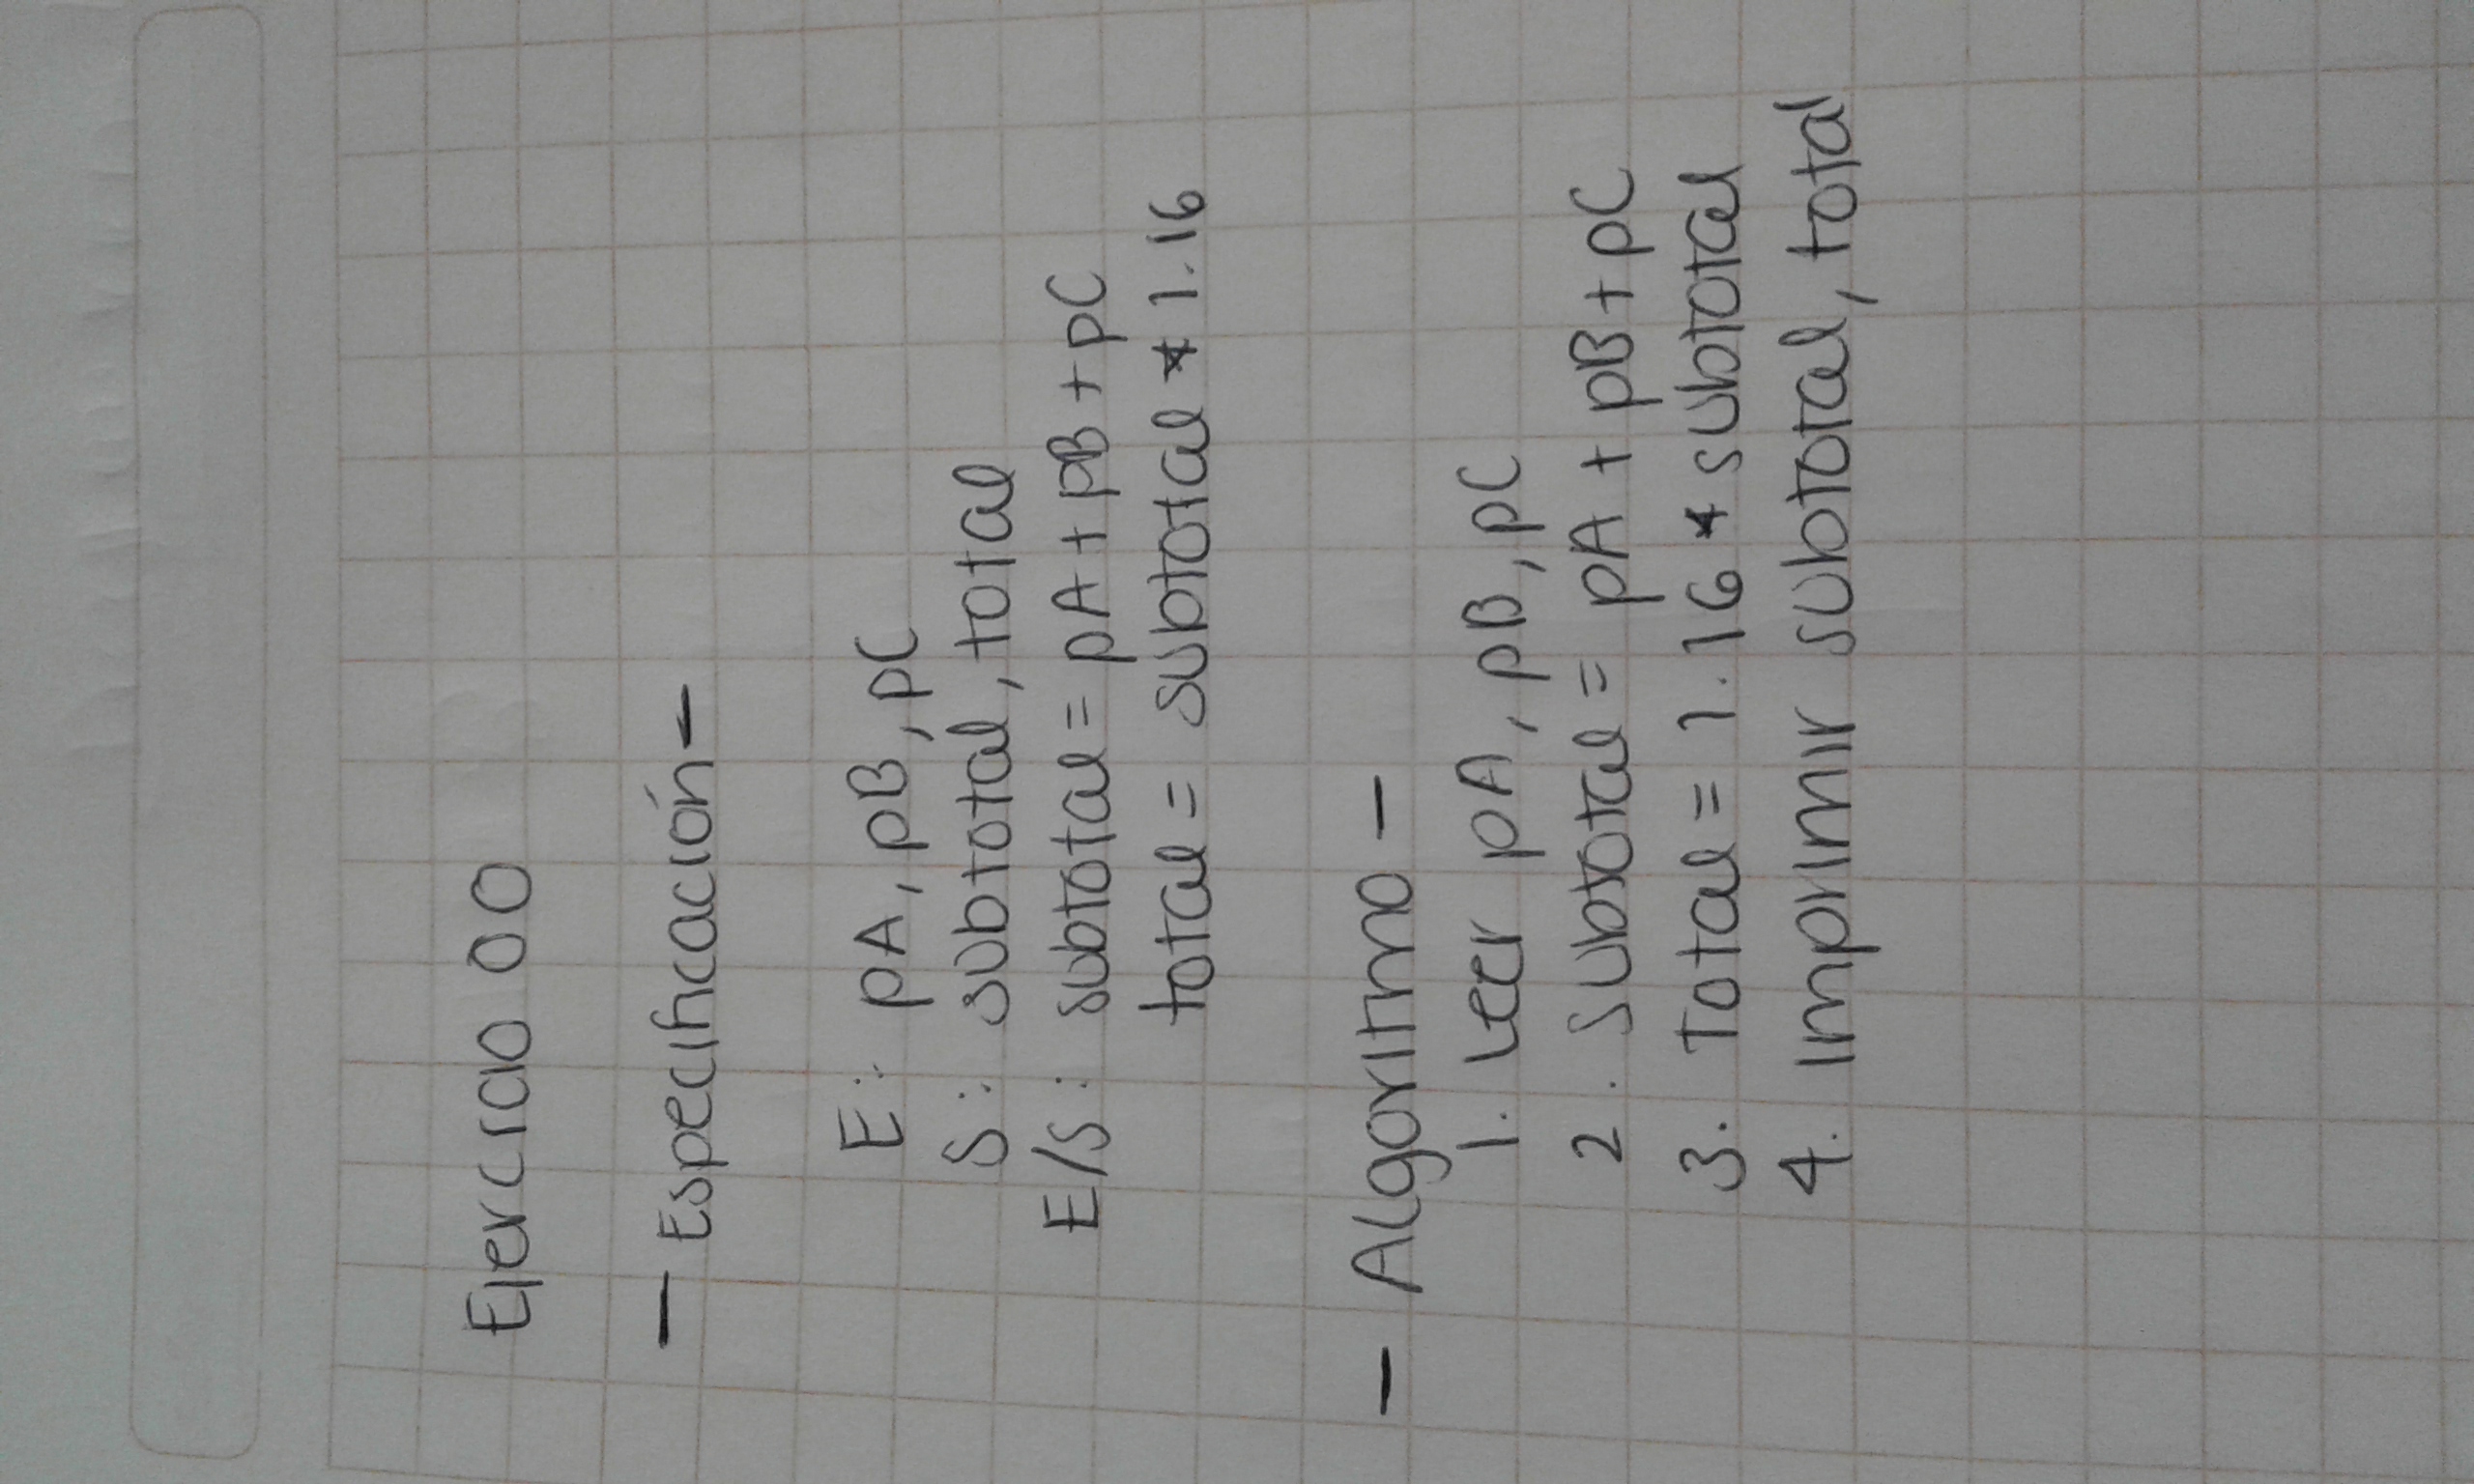 Ejercicio 00
- Especificación -
E: pA, pB, pC
S: subtotal, total
E/S: subtotal = pA + pB + pC
total = subtotal * 1.16
- Algoritmo -
1. Leer pA, pB, pC
2. Subtotal = pA + pB + pC
3. Total = 1.16 * subtotal
4. Imprimir subtotal, total